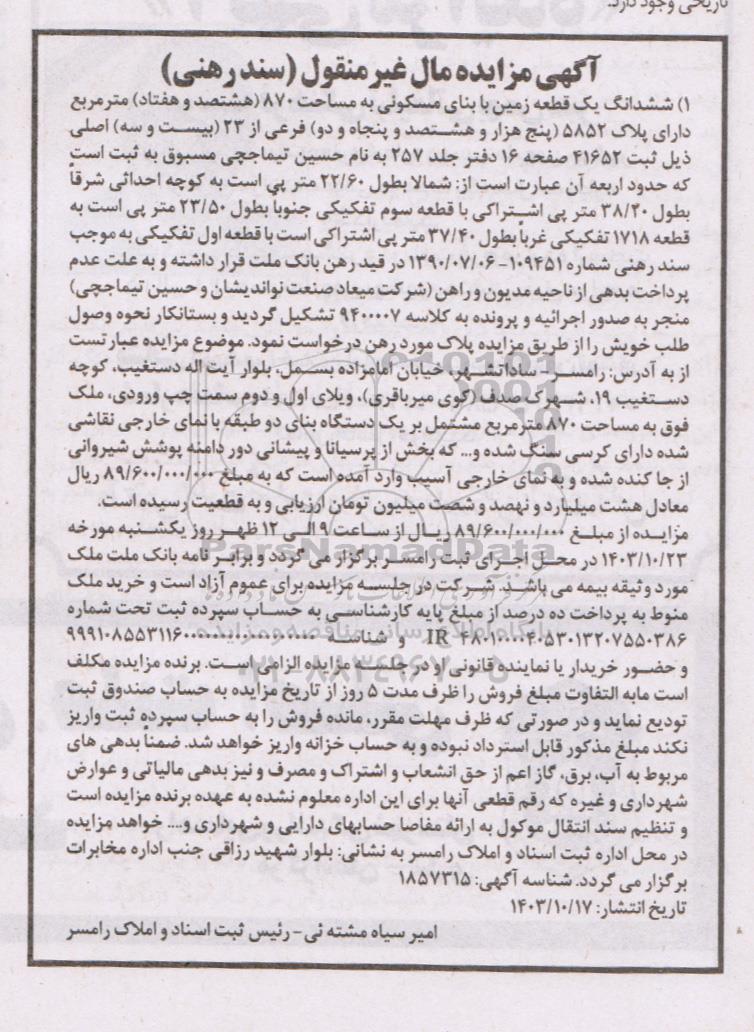 تاریخی وجود دارد.
آگهی مزایده مال غیر منقول (سند رهنی)
۱) ششدانگ یک قطعه زمین با بنای مسکونی به مساحت ۸۷۰ (هشتصد و هفتاد) متر مربع
دارای پلاک ۵۸۵۲ (پنج هزار و هشتصد و پنجاه و دو) فرعی از ۲۳ (بیست و سه) اصلی
ذیل ثبت ۴۱۶۵۲ صفحه ۱۶ دفتر جلد ۲۵۷ به نام حسین تیماجچی مسبوق به ثبت است
که حدود اربعه آن عبارت است از: شمالا بطول ۲۲/۶۰ متر پی است به کوچه احداثی شرقاً
بطول ۳۸/۲۰ متر پی اشتراکی با قطعه سوم تفکیکی جنوباً بطول ۲۳/۵۰ متر پی است به
قطعه ۱۷۱۸ تفکیکی غرباً بطول ۳۷/۴۰ متر پی اشتراکی است با قطعه اول تفکیکی به موجب
سند رهنی شماره ۱۰۹۴۵۱- ۱۳۹۰/۰۷/۰۶ در قید رهن بانک ملت قرار داشته و به علت عدم
پرداخت بدهی از ناحیه مدیون و راهن (شرکت میعاد صنعت نواندیشان و حسین تیماجچی)
منجر به صدور اجرائیه و پرونده به کلاسه ۹۴۰۰۰۰۷ تشکیل گردید و بستانکار نحوه وصول
طلب خویش را از طریق مزایده پلاک مورد رهن درخواست نمود. موضوع مزایده عبارتست
از به آدرس: رامسر - ساداتشهر، خیابان امامزاده بسمل، بلوار آیت اله دستغیب، کوچه
دستغیب ۱۹، شهرک صدف (کوی میرباقری)، ویلای اول و دوم سمت چپ ورودی، ملک
فوق به مساحت ۸۷۰ مترمربع مشتمل بر یک دستگاه بنای دو طبقه با نمای خارجی نقاشی
شده دارای کرسی سنگ شده و... که بخش از پرسیانا و پیشانی دور دامنه پوشش شیروانی
از جا کنده شده و به نمای خارجی آسیب وارد آمده است که به مبلغ ۸۹/۶۰۰/۰۰۰/۰۰۰ ریال
معادل هشت میلیارد و نهصد و شصت میلیون تومان ارزیابی و به قطعیت رسیده است.
مزایده از مبلغ ۸۹/۶۰۰/۰۰۰/۰۰۰ ریال از ساعت ۹ الی ۱۲ ظهر روز یکشنبه مورخه
۱۴۰۳/۱۰/۲۳ در محل اجرای ثبت رامسر برگزار می گردد و برابر نامه بانک ملت ملک
مورد وثیقه بیمه می باشد. شرکت در جلسه مزایده برای عموم آزاد است و خرید ملک
منوط به پرداخت ده درصد از مبلغ پایه کارشناسی به حساب سپرده ثبت تحت شماره
IR و شناسه
و حضور خریدار یا نماینده قانونی او در جلسه مزایده الزامی است. برنده مزایده مکلف
است مابه التفاوت مبلغ فروش را ظرف مدت ۵ روز از تاریخ مزایده به حساب صندوق ثبت
تودیع نماید و در صورتی که ظرف مهلت مقرر، مانده فروش را به حساب سپرده ثبت واریز
نکند مبلغ مذکور قابل استرداد نبوده و به حساب خزانه واریز خواهد شد. ضمناً بدهی های
مربوط به آب، برق، گاز اعم از حق انشعاب و اشتراک و مصرف و نیز بدهی مالیاتی و عوارض
شهرداری و غیره که رقم قطعی آنها برای این اداره معلوم نشده به عهده برنده مزایده است
و تنظیم سند انتقال موکول به ارائه مفاصا حسابهای دارایی و شهرداری و.... خواهد مزایده
در محل اداره ثبت اسناد و املاک رامسر به نشانی: بلوار شهید رزاقی جنب اداره مخابرات
برگزار می گردد. شناسه آگهی: ۱۸۵۷۳۱۵
تاریخ انتشار: ۱۴۰۳/۱۰/۱۷
امیر سیاه مشته ئی - رئیس ثبت اسناد و املاک رامسر
ParsNamadData
۰۲۱-۸۸۳۴۹۶۷۰